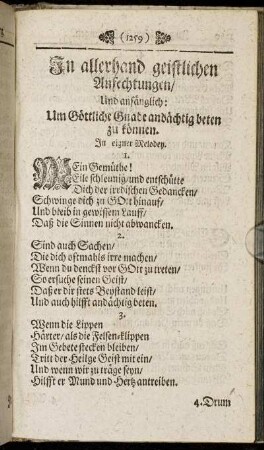 (1259)
In allerhand geistlichen
Anfechtungen/
Und anfänglich:
Um Göttliche Gnade andächtig beten
zu können.
In eigner Melodey.
1.
MEin Gemüthe!
Eile schleunig/und entschütte
Dich der irrdischen Gedancken/
Schwinge dich zu GOtt hinauf/
Und bleib in gewissem Lauff/
Daß die Sinnen nicht abwancken.
2.
Sind auch Sachen/
Die dich oftmahls irre machen/
Wenn du denckst vor GOtt zu treten/
So ersuche seinen Geist/
Daß er dir stets Beystand leist/
Und auch hilfft andächtig beten.
3.
Wenn die Lippen
Härter/als die Felsen-klippen
Im Gebete stecken bleiben/
Tritt der Heilge Geist mit ein/
Und wenn wir zu träge seyn/
Hilfft er Mund und Hertz antreiben.
4. Drum